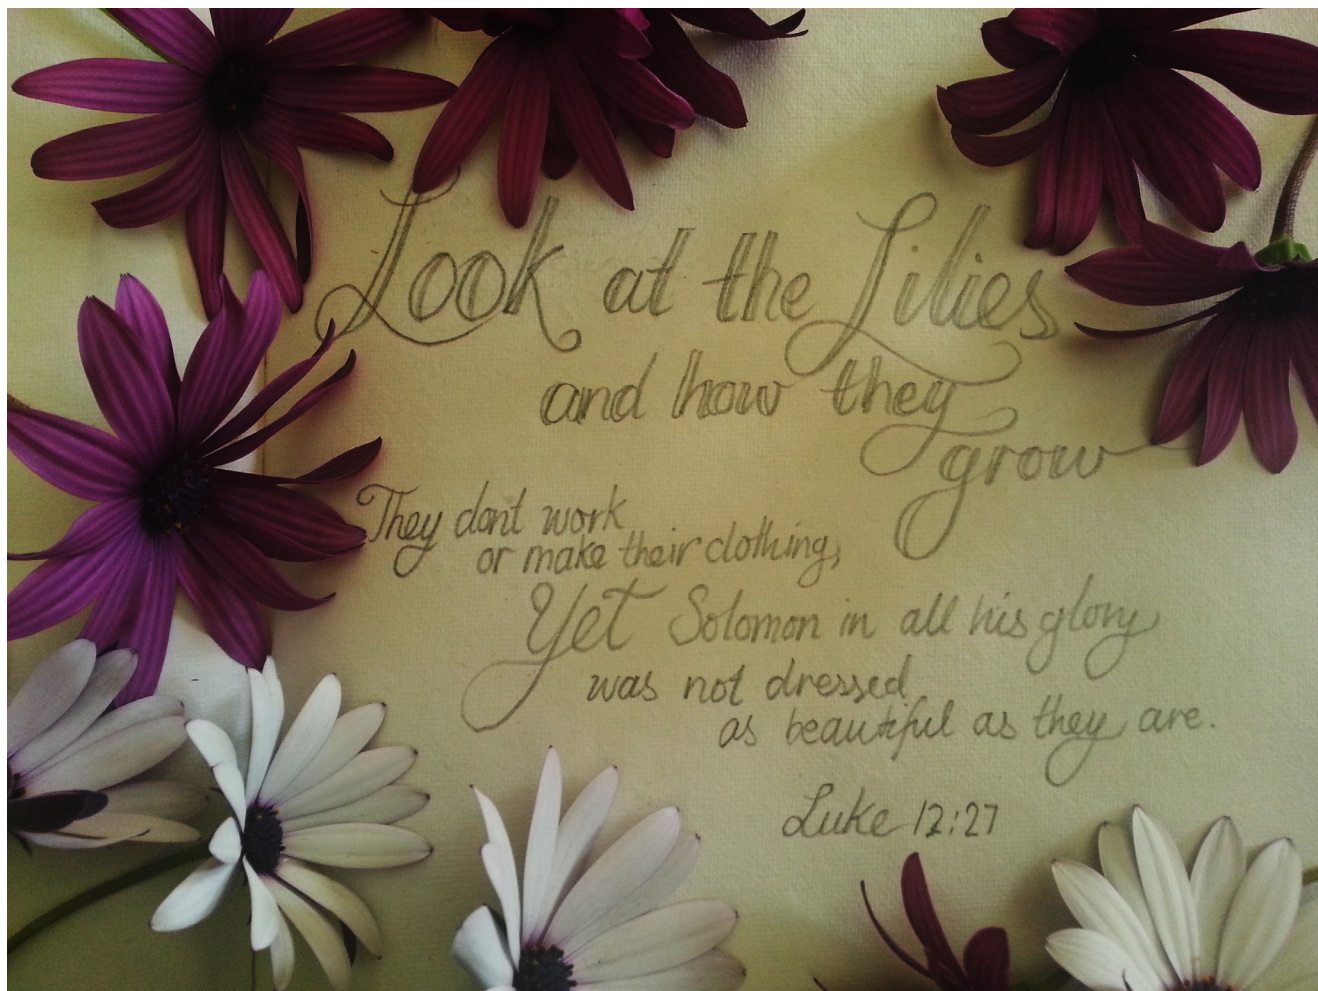 Look at the Lilies
and how they
grow
They dont work
or make their clothing,
Yet Solomon in all his glory
was not dressed
as beautiful as they are.
Luke 12:27